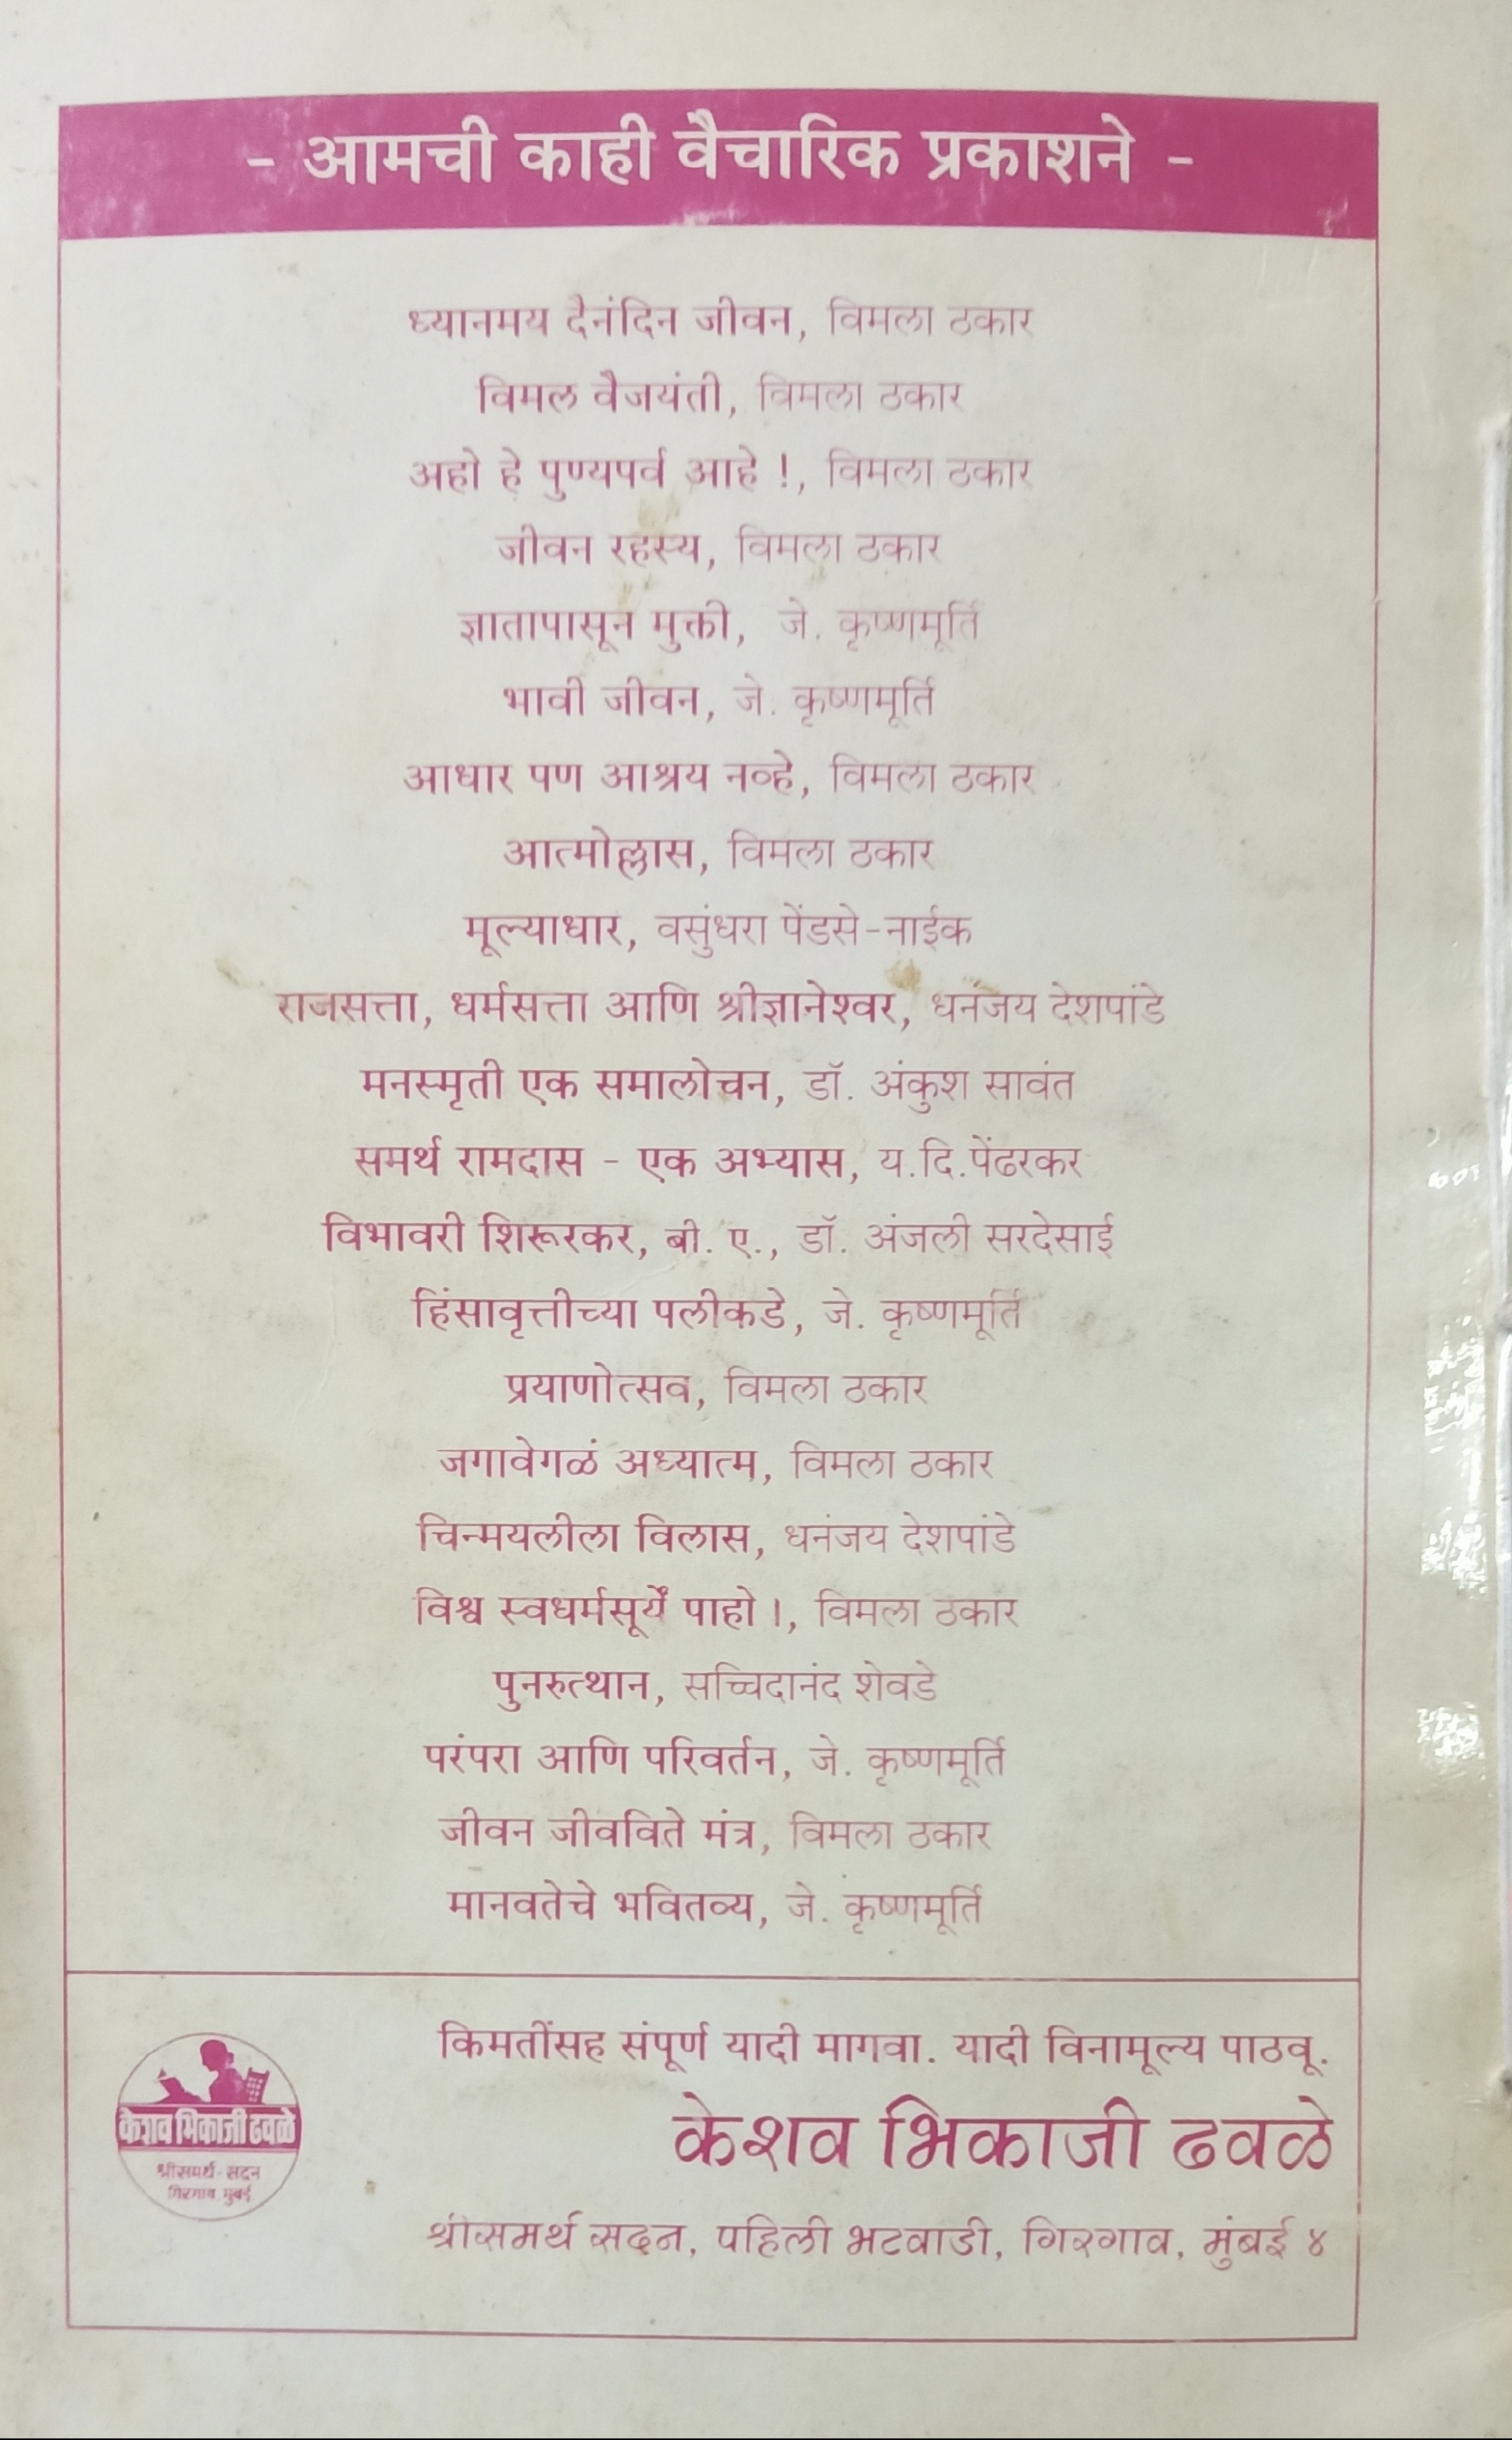 - आमची काही वैचारिक प्रकाशने -
ध्यानमय दैनंदिन जीवन, विमला ठकार
विमल वैजयंती, विमला ठकार
अहो हे पुण्यपर्व आहे !, विमला ठकार
जीवन रहस्य, विमला ठकार
ज्ञातापासून मुक्ती, जे. कृष्णमूर्ति
भावी जीवन, जे. कृष्णमूर्ति
आधार पण आश्रय नव्हे, विमला ठकार
आत्मोल्लास, विमला ठकार
मूल्याधार, वसुंधरा पेंडसे-नाईक
राजसत्ता, धर्मसत्ता आणि श्रीज्ञानेश्वर, धनंजय देशपांडे
मनस्मृती एक समालोचन, डॉ. अंकुश सावंत
समर्थ रामदास - एक अभ्यास, य.दि.पेंढरकर
विभावरी शिरूरकर, बी. ए., डॉ. अंजली सरदेसाई
हिंसावृत्तीच्या पलीकडे, जे. कृष्णमूर्ति
प्रयाणोत्सव, विमला ठकार
जगावेगळं अध्यात्म, विमला ठकार
चिन्मयलीला विलास, धनंजय देशपांडे
विश्व स्वधर्मसूर्यें पाहो ।, विमला ठकार
पुनरुत्थान, सच्चिदानंद शेवडे
परंपरा आणि परिवर्तन, जे. कृष्णमूर्ति
जीवन जीवविते मंत्र, विमला ठकार
मानवतेचे भवितव्य, जे. कृष्णमूर्ति
किमतींसह संपूर्ण यादी मागवा. यादी विनामूल्य पाठवू.
केशव भिकाजी ढवळे
श्रीसमर्थ सदन, पहिली भटवाडी, गिरगाव, मुंबई ४
केशव भिकाजी ढवळे
श्रीसमर्थ-सदन
गिरगाव मुंबई